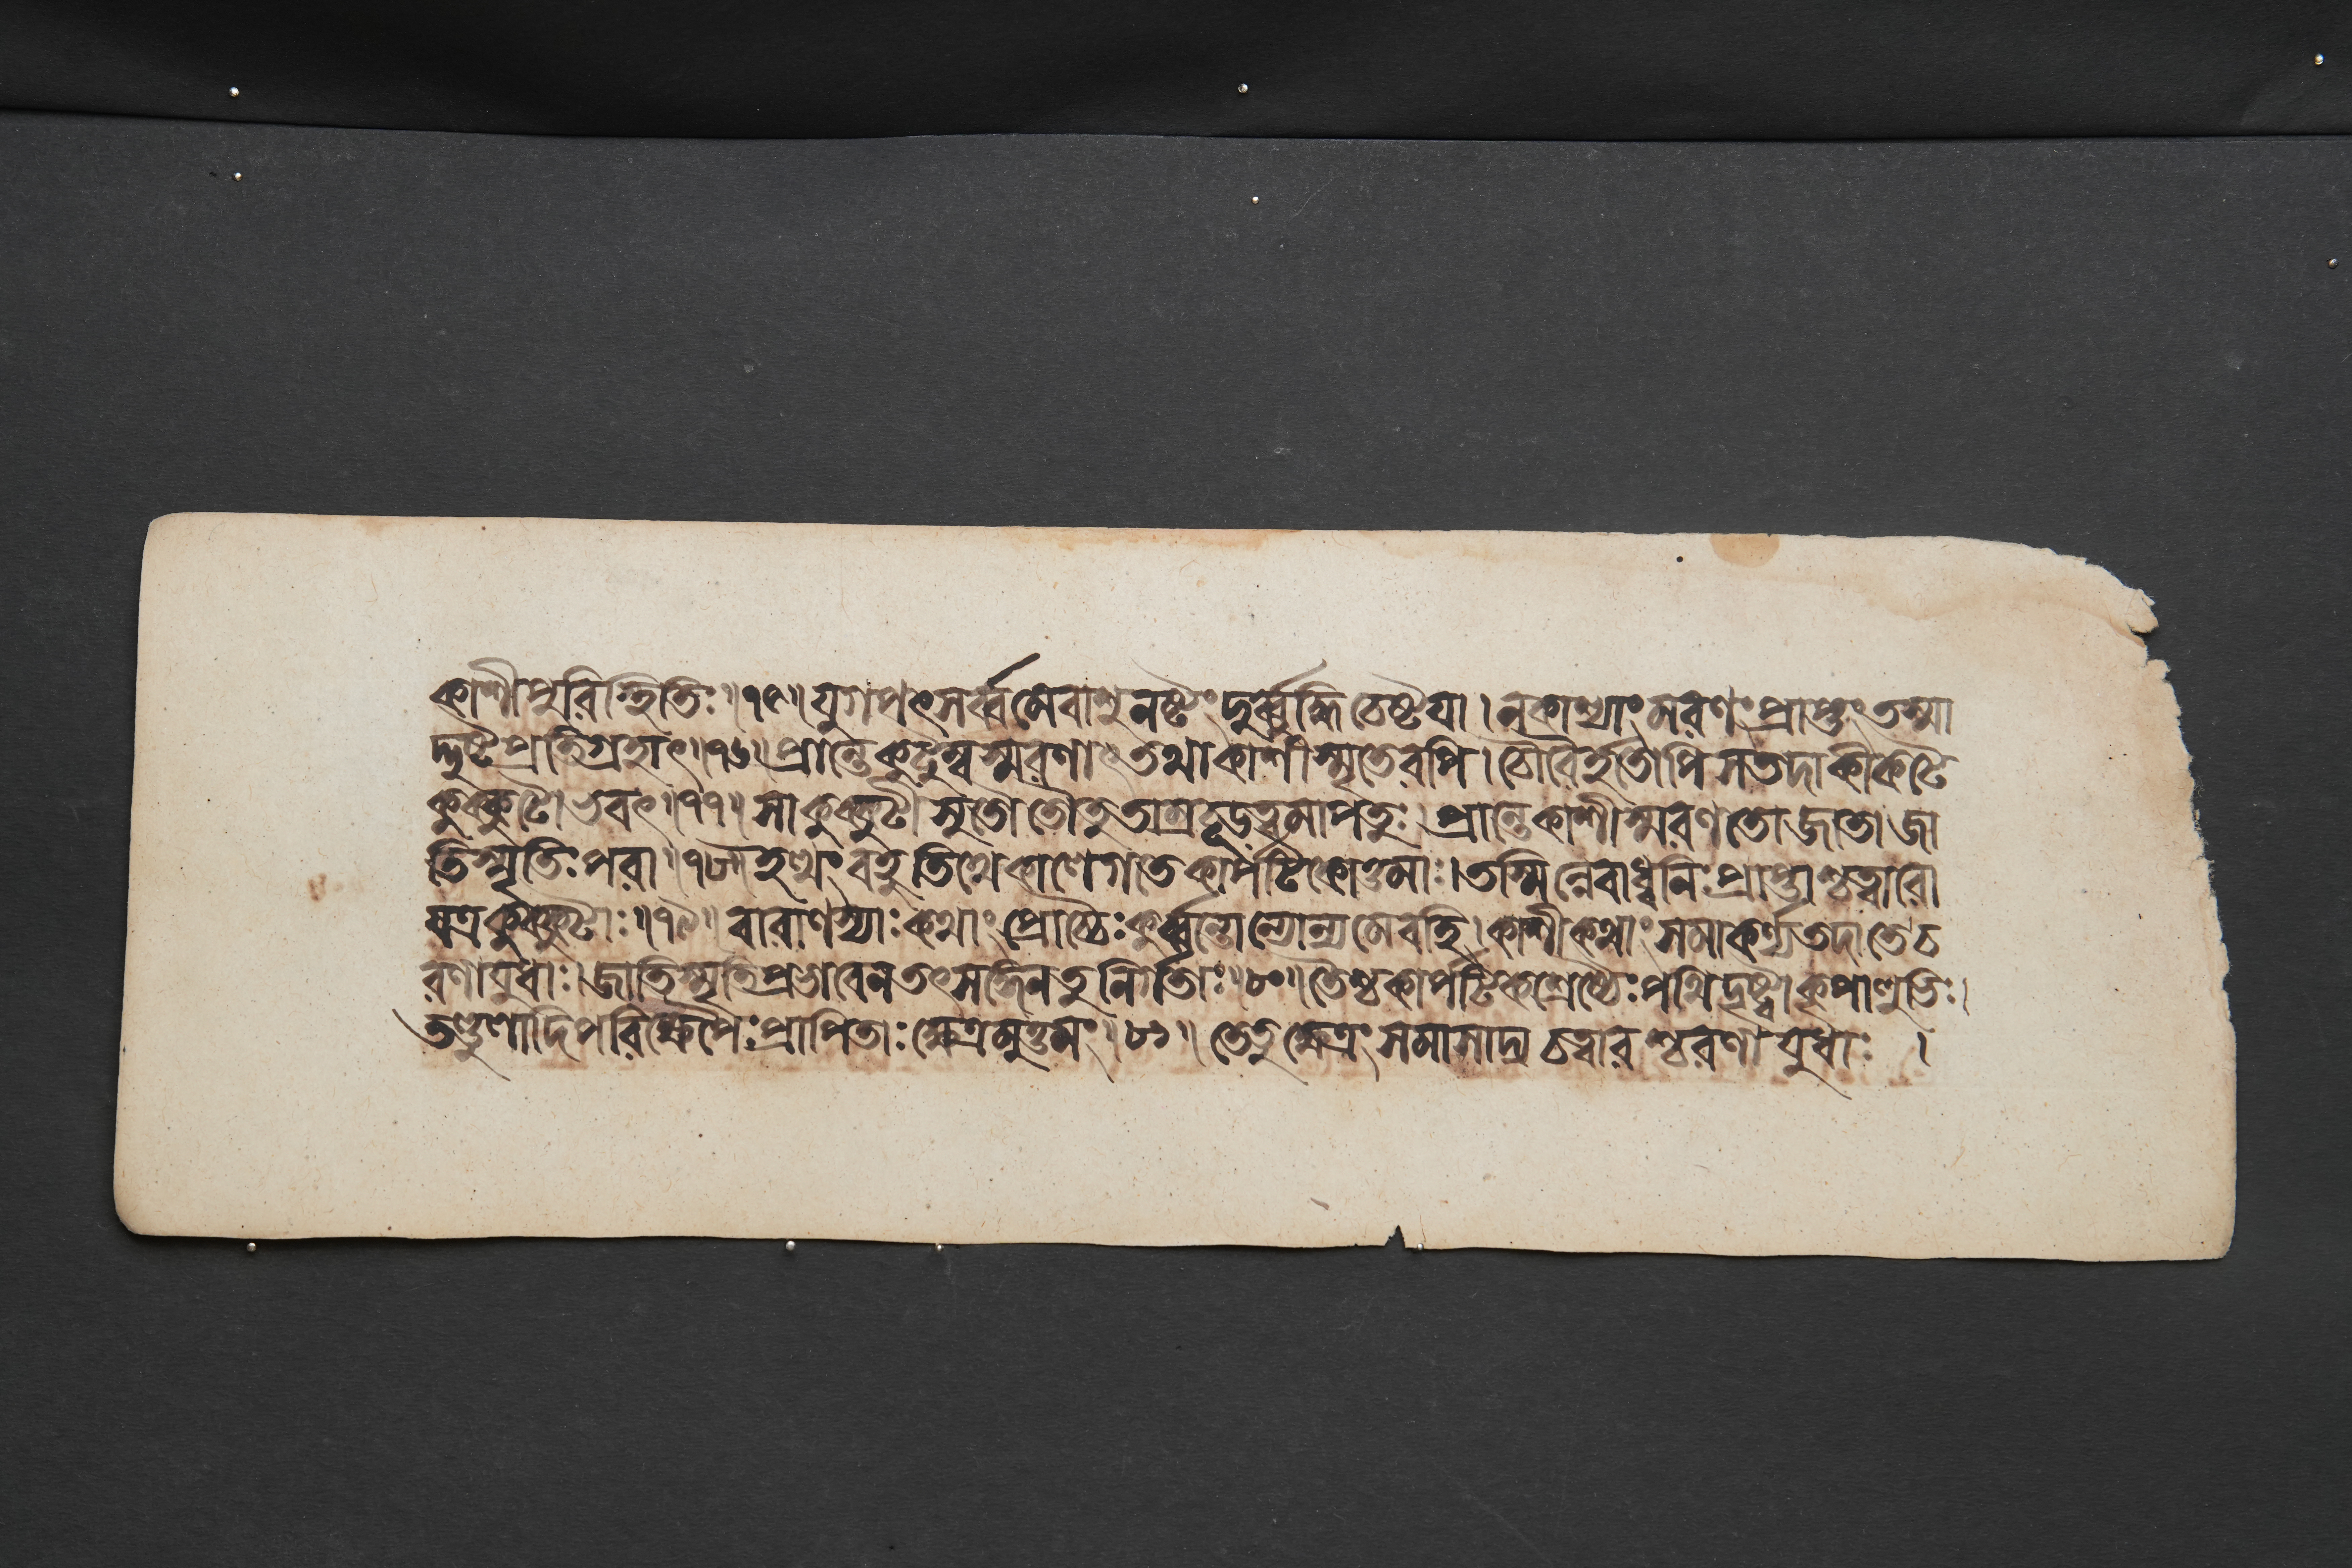 কাশীপুরিস্থিতিঃ॥৭৫॥যুগপৎসর্ব্বমেবাশুনষ্টং দুর্ব্বুদ্ধিচেষ্টয়া।নকাশ্যাং মরণং প্রাপ্তং তস্মা
দ্দুষ্টপ্রতিগ্রহাৎ॥৭৬॥প্রান্তে কুটুম্বস্মরণাৎ তথাকাশীস্মৃতেরপি।চৌরৈর্হতোপি সতদাকীকটে
কুক্কুটোভবৎ॥৭৭॥সাকুক্কুটী সুতৌ তৌতু তাম্রচূড়ত্বমাপতুঃ।প্রান্তেকাশীস্মরণতো জাতা জা
তিস্মৃতিঃ পরা॥৭৮॥ইত্থং বহুতিথেকালেগতেকার্পটিকোত্তমাঃ।তস্মিন্নেবাধ্বনিঃপ্রাপ্তাশ্চত্বারো
যত্রকুক্কুটাঃ॥৭৯॥বারাণস্যাঃকথাং প্রোচ্চৈঃকুর্ব্বন্তোন্যোন্যমেবহি।কাশীকথাং সমাকর্ণ্যতদাতেচ
রণায়ুধাঃ।জাতিস্মৃতিপ্রভাবেনতৎসঙ্গেনতুনির্গতাঃ॥৮০॥তৈশ্চকার্পটিকশ্রেষ্ঠৈঃপথিদৃষ্ট্বাকৃপালুভিঃ।
তণ্ডুলাদিপরিক্ষেপৈঃপ্রাপিতাঃক্ষেত্রমুত্তমং॥৮১॥ তেতুক্ষেত্রং সমাসাদ্য চত্বারশ্চরণায়ুধাঃ ।